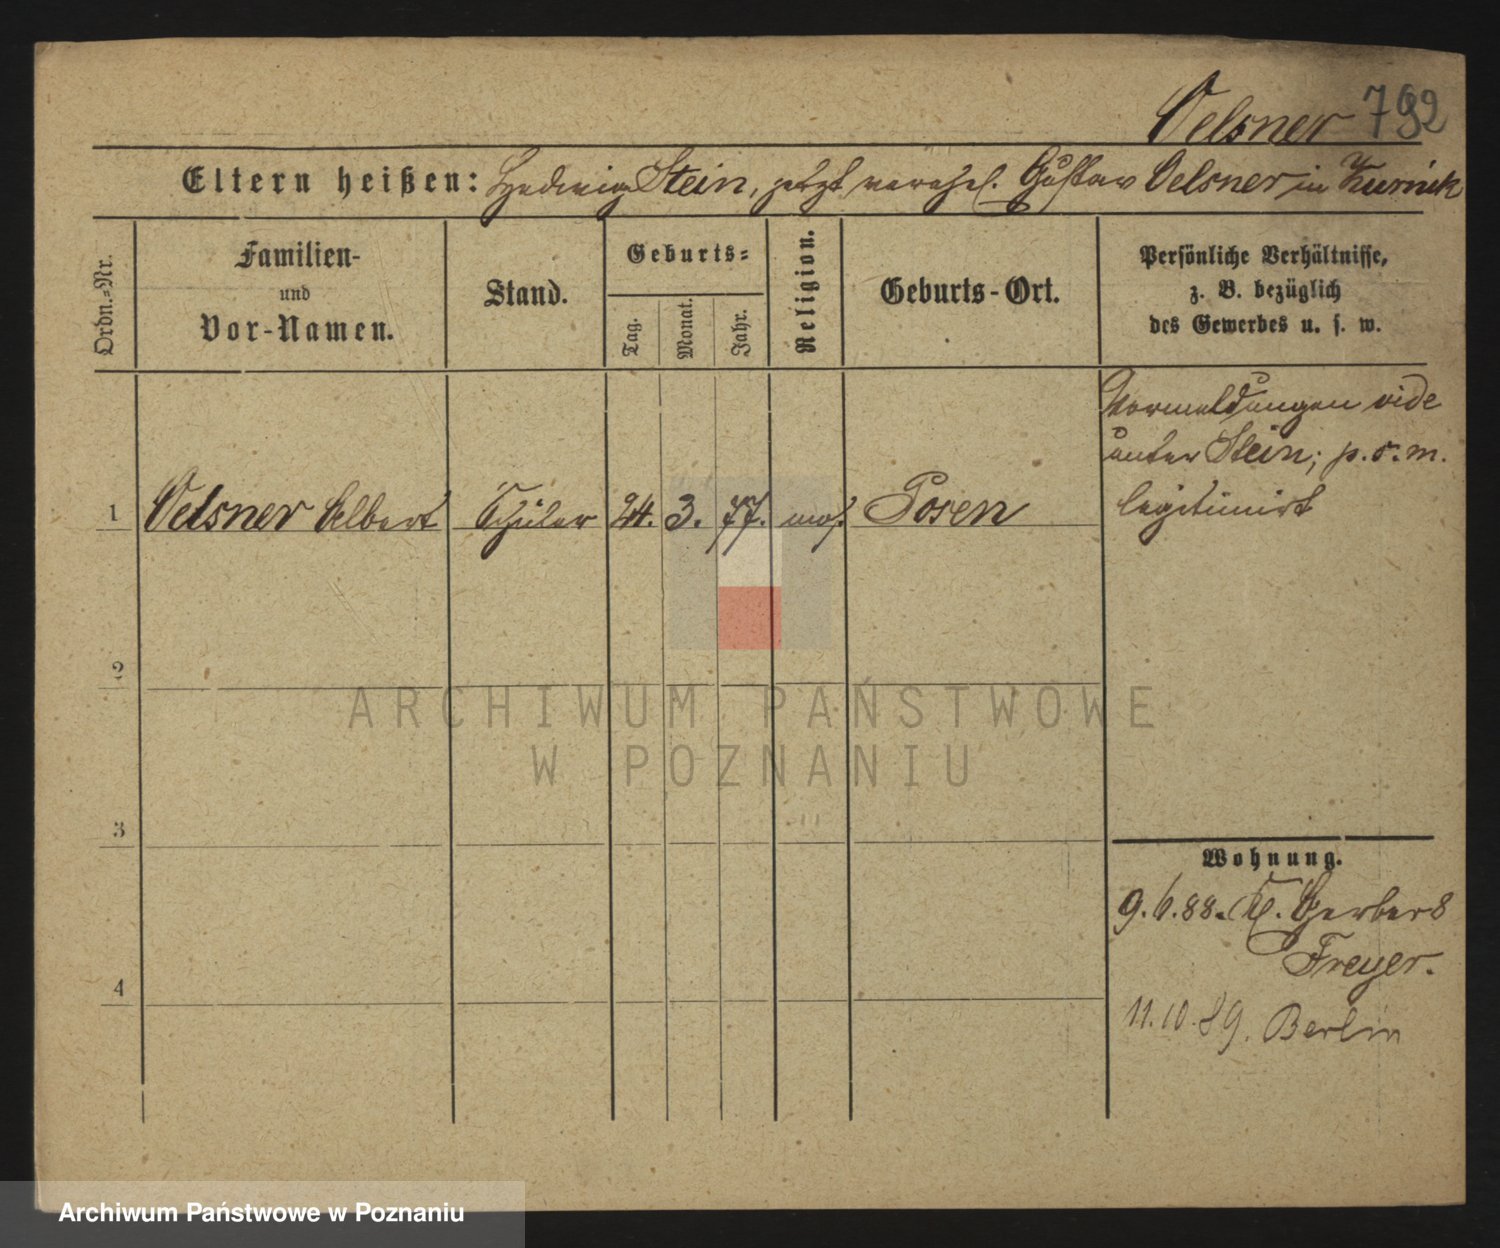 Oelsner 792
Eltern heißen: Hedwig Stein, jetzt verehel. Gustav Oelsner in Kurnik
Ordn.=Nr.
Familien-
und
Vor-Namen.
Stand.
Geburts=
Tag.
Monat.
Jahr.
Religion.
Geburts-Ort.
Persönliche Verhältnisse,
z. B. bezüglich
des Gewerbes u. s. w.
Vormeldungen vide
unter Stein; p. s. m.
legitimirt
1 Oelsner Albert Schüler 24. 3. 77. mos. Posen
2
ARCHIWUM PAŃSTWOWE
W POZNANIU
3
Wohnung.
9.6.88. Kl. Gerber 8
Freyer.
4
11.10.89. Berlin
Archiwum Państwowe w Poznaniu